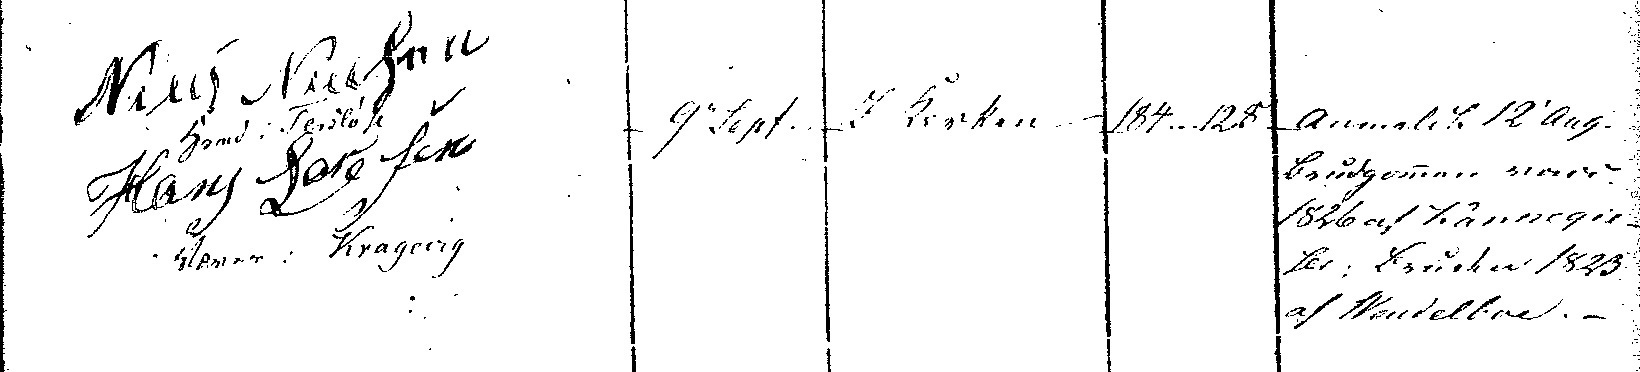 Niels Nielsen
Hmd: Terslöse
Hans Larsen
Væver: Kragevig
9' Sept. I Kirken 184 128 Anmeldt 12' Aug.
Brudgomen vacc.
1826 af Kannegie-
ßer; Bruden 1823
af Wendelboe. -